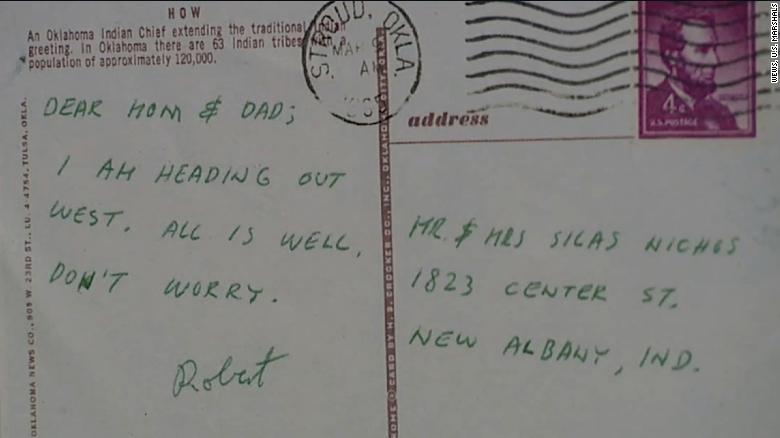 HOW
An Oklahoma Indian Chief extending the traditional
greeting. In Oklahoma there are 63 Indian tribes
population of approximately 120,000.
STROUD, OKLA.
MAR
AM
4¢
U.S. POSTAGE
address
DEAR MOM & DAD;
I AM HEADING OUT
WEST. ALL IS WELL,
DON'T WORRY.
Robert
MR. & MRS SILAS NICHOLS
1823 CENTER ST.
NEW ALBANY, IND.
OKLAHOMA NEWS CO., 909 W. 23RD ST., LU. 4-4754, TULSA, OKLA.
CARD BY H. S. CROCKER CO., INC., OKLAHOMA CITY, OKLA.
WEWS, U.S. MARSHALS